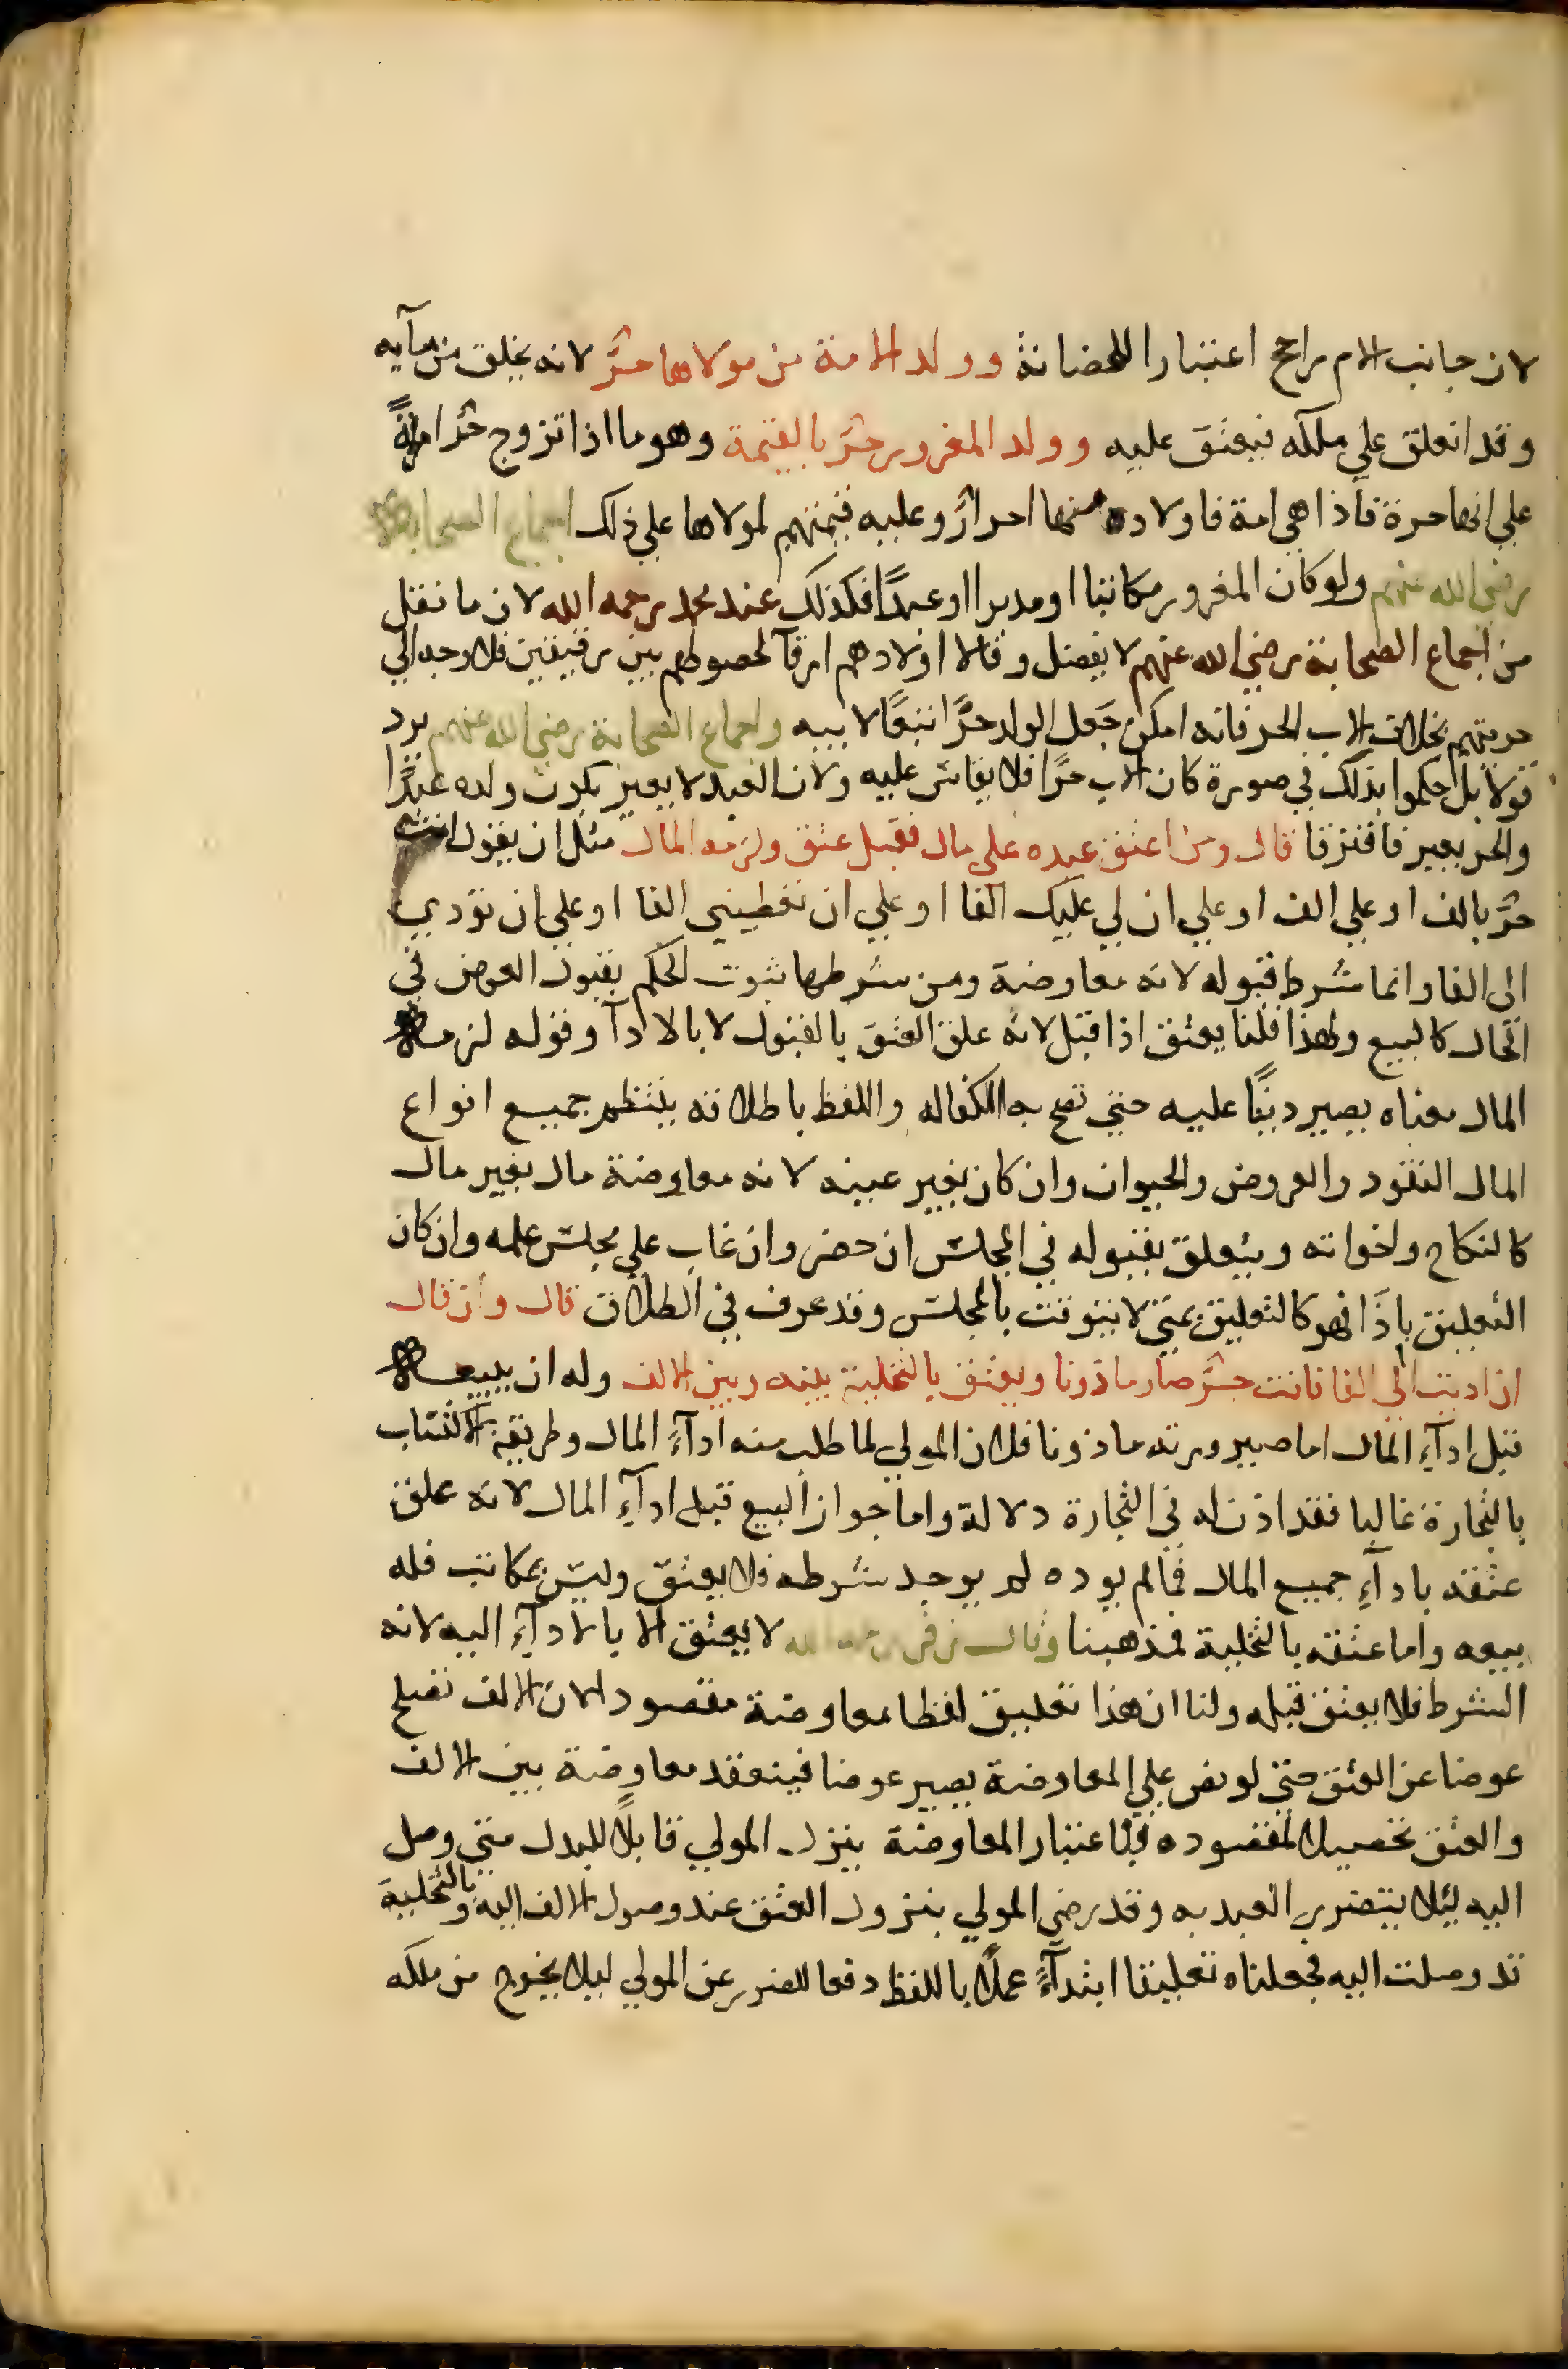 لان جانب الام راجح اعتبارا للحضانة وولد الامة من مولاها حرٌّ لانه يخلق من مآيه
وقد انعلق علي ملكه فيعتق عليه وولد المغرور حرٌّ بالقيمة وهو ما اذا تزوج حرٌّ امراةً
علي انها حرة فاذا هي امة فاولاده منها احرارٌ وعليه قيمتهم لمولاها علي ذلك اجماع الصحابة
رضي الله عنهم ولو كان المغرور مكاتبا او مدبرا او عبدًا فكذلك عند محمد رحمه الله لان ما نقل
من اجماع الصحابة رضي الله عنهم لا يفصل وقالا اولادهم ارقآ لحصولهم بين رقيقين فلا وجه الي
حريتهم بخلاف الاب الحر فانه امكن جَعل الولد حرًّا تبعًا لابيه واجماع الصحابة رضي الله عنهم يرد
قولا بل حكموا بذلك في صورة كان الاب حرًا فلا يقاس عليه ولان العبد لا يعير بكون ولده عبدًا
والحر يعير فافترقا قال ومن اعتق عبده علي مال فقبل عتق ولزمه المال مثل ان يقول انت
حرٌّ بالف او علي الف او علي ان لي عليك الفا او علي ان تعطيني الفا او علي ان تؤدي
الي الفا وانما شرط قبوله لانه معاوضة ومن شرطها ثبوت الحكم بقبول العوض في
الحال كالبيع ولهذا قلنا يعتق اذا قبل لانه علق العتقَ بالقبول لا بالادآ وقوله لزمه
المال معناه يصير دينًا عليه حتي تصح به الكفاله واللفظ باطلاقه ينتظم جميع انواع
المال النقود والعروض والحيوان وان كان بغير عينه لانه معاوضة مال بغير مال
كالنكاح واخواته ويتعلق بقبوله في المجلس ان حضر وان غاب علي مجلس علمه وان كان
التعليق باذَا فهو كالتعليق بمتي لا يتوقت بالمجلس وقد عرف في الطلاق قال وان قال
ان اديت الي الفا فانت حرٌّ صار ماذونا ويعتق بالتخلية بينه وبين الالف وله ان يبيعه
قبل ادآءِ المال اما صيرورته ماذونا فلان المولي لما طلب منه ادآءَ المال وطريقه الاكتساب
بالتجارة غالبا فقد اذن له في التجارة دلالة واما جواز البيع قبل ادآءِ المال لانه علق
عتقه بادآءِ جميع المال فما لم يوده لم يوجد شرطه فلا يعتق وليس بمكاتب فله
بيعه واما عتقه بالتخلية فمذهبنا وقال زفر رحمه الله لا يعتق الا بالادآءِ اليه لانه
الشرط فلا يعتق قبله ولنا ان هذا تعليق لفظا معاوضة مقصودا لان الالف تصلح
عوضا عن العتق حتي لو نص علي المعاوضة يصير عوضا فينعقد معاوضة بين الالف
والعتق تحصيلا لمقصوده فباعتبار المعاوضة ينزل المولي قابلًا للبدل متي وصل
اليه ليلا يتضرر العبد به وقد رضي المولي بنزول العتق عند وصول الالف اليه وبالتخلية
قد وصلت اليه فجعلناه تعليقا ابتدآءً عملًا باللفظ دفعا للضرر عن المولي ليلا يخرج من ملكه